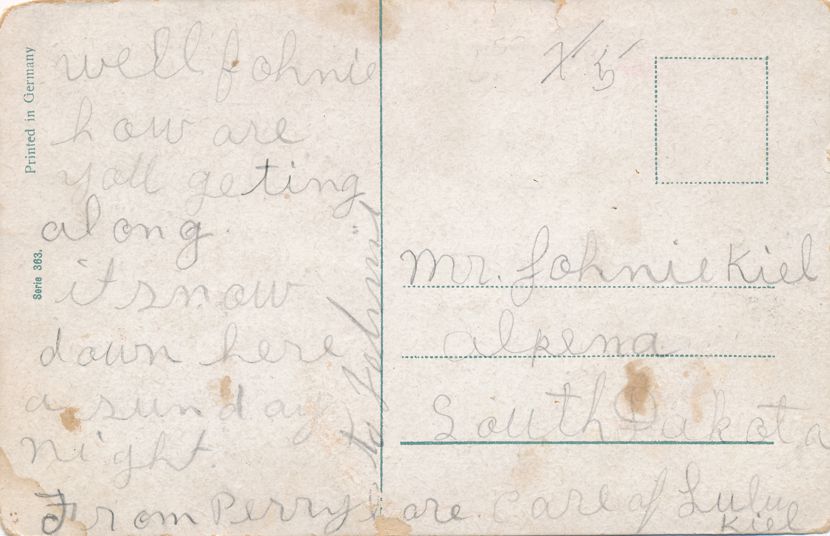 Printed in Germany
Serie 363.
well Johnie
how are
you geting
along.
it snow
down here
a sunday
night.
From Perry
to Johnie
Mr. Johnie Kiel
alpena
South Dakota
care of Lulu
Kiel